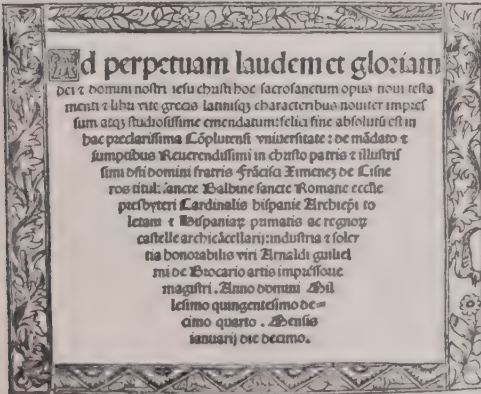 Ad perpetuam laudem et gloriam
dei ⁊ domini nostri iesu christi hoc sacrosanctum opus noui testa
menti ⁊ libri vite grecis latinisqꝫ characteribus nouiter impres
sum atqꝫ studiosissime emendatum: felici fine absolutũ est in
hac preclarissima Cõplutensi vniuersitate: de mãdato ⁊
sumptibus Reuerendissimi in christo patris ⁊ illustris
simi dñi domini fratris Frãcisci Ximenez de Cisne
ros tituli sancte Balbine sancte Romane ecclie
presbyteri Cardinalis hispanie Archiepi to
letani ⁊ Hispaniaꝝ primatis ac regnoꝝ
castelle archicãcellarij: industria ⁊ soler
tia honorabilis viri Arnaldi guiliel
mi de Brocario artis impressorie
magistri. Anno domini Mil
lesimo quingentesimo de=
cimo quarto. Mensis
ianuarij die decimo.